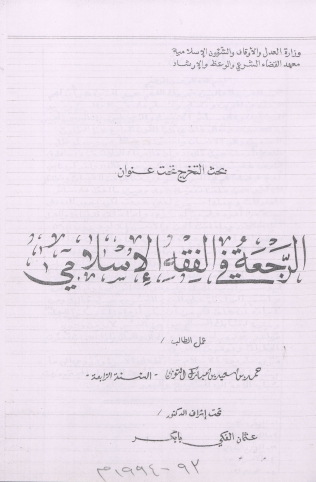 وزارة العدل والأوقاف والشئون الإسلامية
معهد القضاء الشرعي والوعظ والإرشاد
بحث التخرج تحت عنوان
الرَّجعَةُ في الفِقهِ الإِسْلامِي
عمل الطالب /
حمد بن سعيد بن المبارك - السنة الرابعة -
تحت إشراف الدكتور /
عثمان الفكي بابكر
٩٢-١٩٩٤م